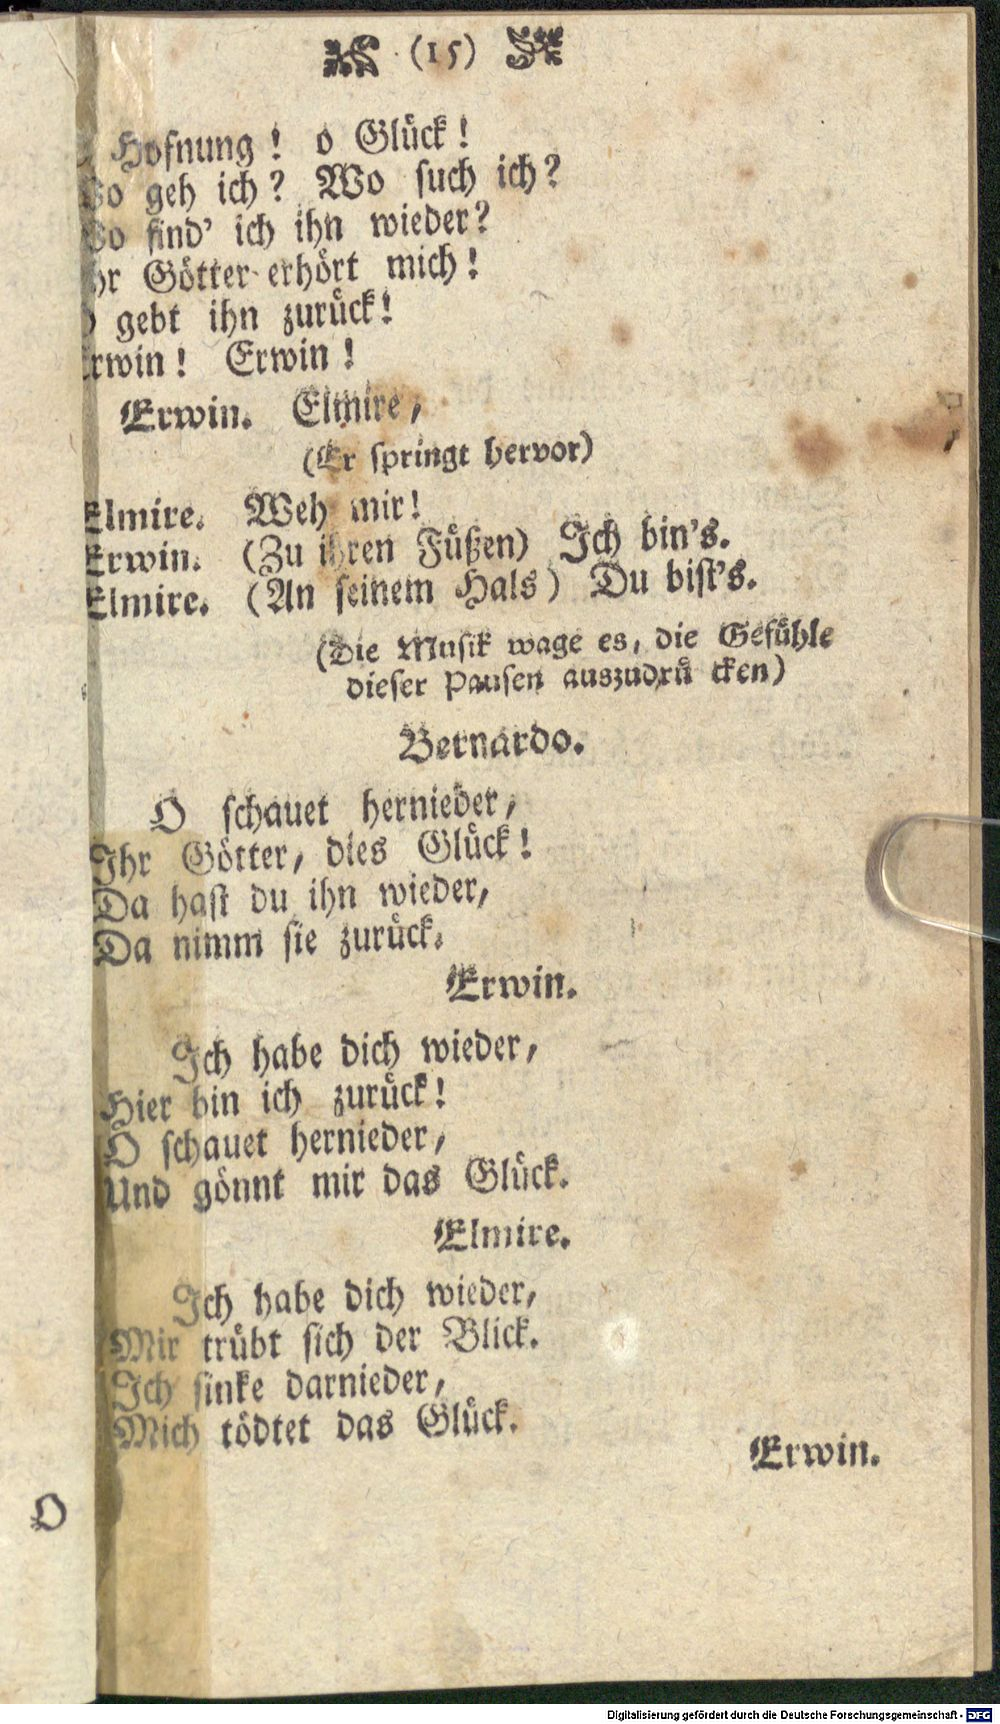 (15)
Hofnung! o Glück!
geh ich? Wo such ich?
find' ich ihn wieder?
Götter erhört mich!
gebt ihn zurück!
Erwin! Erwin!
Erwin. Elmire,
(Er springt hervor)
Elmire. Weh mir!
Erwin. (Zu ihren Füßen) Ich bin's.
Elmire. (An seinem Hals) Du bist's.
(Die Musik wage es, die Gefühle
dieser Pausen auszudrü cken)
Bernardo.
O schauet hernieder,
Ihr Götter, dies Glück!
Da hast du ihn wieder,
Da nimm sie zurück.
Erwin.
Ich habe dich wieder,
Hier bin ich zurück!
O schauet hernieder,
Und gönnt mir das Glück.
Elmire.
Ich habe dich wieder,
Mir trübt sich der Blick.
Ich sinke darnieder,
Mich tödtet das Glück.
Erwin.
O
Digitalisierung gefördert durch die Deutsche Forschungsgemeinschaft - DFG